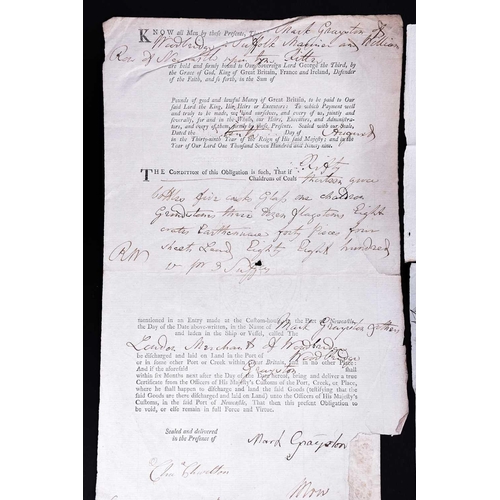 KNOW all Men by these Presents, That Mark Grayston of
Woodbridge Suffolk Mariner and William
Row of Newcastle upon Tyne
are held and firmly bound to Our Sovereign Lord George the Third, by
the Grace of God, King of Great Britain, France and Ireland, Defender
of the Faith, and so forth, in the Sum of
Pounds of good and lawful Money of Great Britain, to be paid to Our
said Lord the King, His Heirs or Executors: To which Payment well
and truly to be made, we bind ourselves, and every of us, jointly and
severally, for and in the Whole, our Heirs, Executors, and Administra-
tors, and every of them, firmly by these Presents. Sealed with our Seals,
Dated the Day of August
in the Thirty-ninth Year of the Reign of His said Majesty; and in the
Year of Our Lord One Thousand Seven Hundred and Ninety nine.
Fifty
THE CONDITION of this Obligation is such, That if thirteen groce
Chaldrons of Coals
bottles five casks Glass one chaldron
Grindstones three Dozen flagstones Eight
crates Earthenware forty pieces four
sheets Lead Eighty Eight hundred
RW
mentioned in an Entry made at the Custom-house, in the Port of Newcastle,
the Day of the Date above-written, in the Name of Mark Grayston & others
and laden in the Ship or Vessel, called The
London Merchant of Woodbridge
be discharged and laid on Land in the Port of Woodbridge
or in some other Port or Creek within Great Britain, and in no other Place:
And if the aforesaid Grayston shall
within Six Months next after the Day of the Date hereof, bring and deliver a true
Certificate from the Officers of His Majesty's Customs of the Port, Creek, or Place,
where he shall happen to discharge and land the said Goods (testifying that the
said Goods are there discharged and laid on Land) unto the Officers of His Majesty's
Customs, in the said Port of Newcastle, That then this present Obligation to
be void, or else remain in full Force and Virtue.
Sealed and delivered
in the Presence of
Mark Grayston